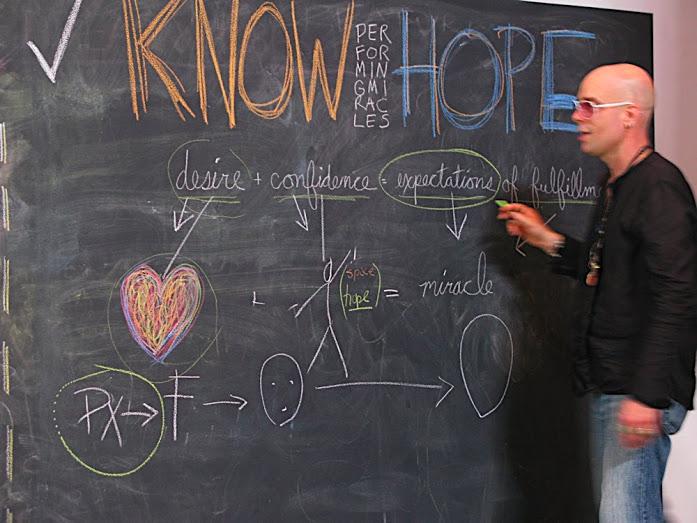 KNOW PERFORMINGMIRACLES HOPE
desire + confidence = expectations of fulfillm
+ space hope = miracle
PX → F → →